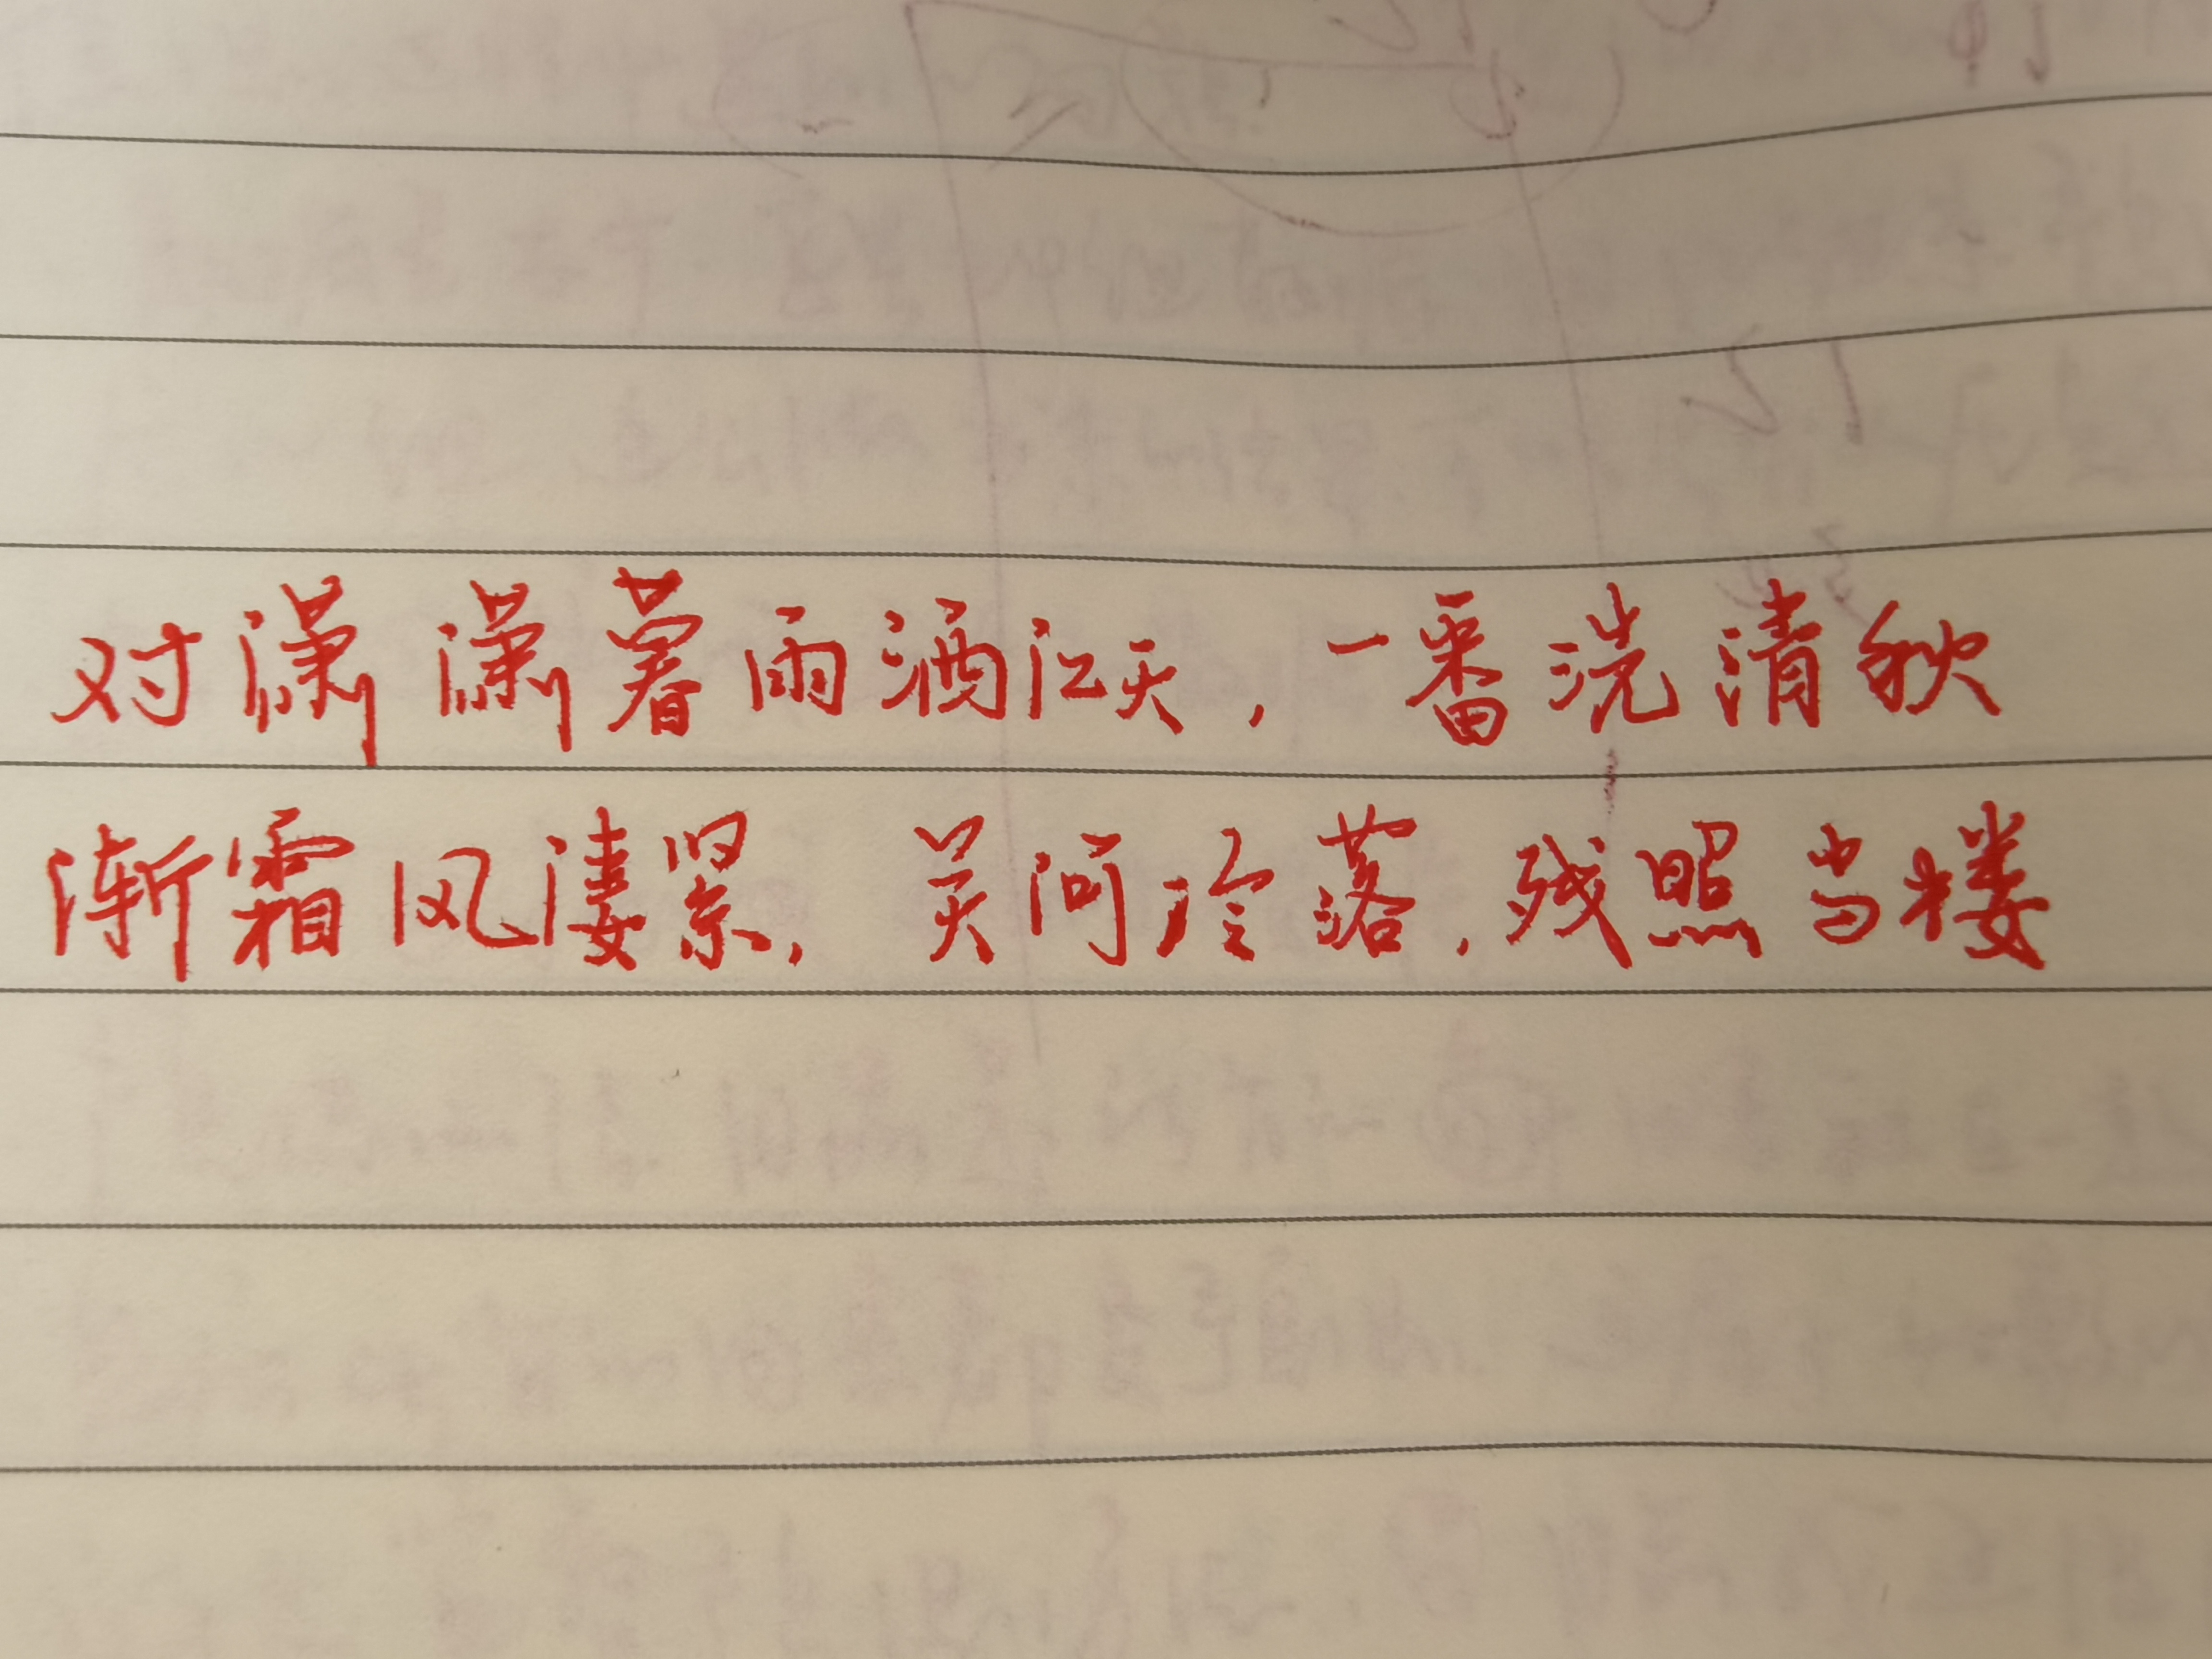 对潇潇暮雨洒江天，一番洗清秋
渐霜风凄紧，关河冷落，残照当楼